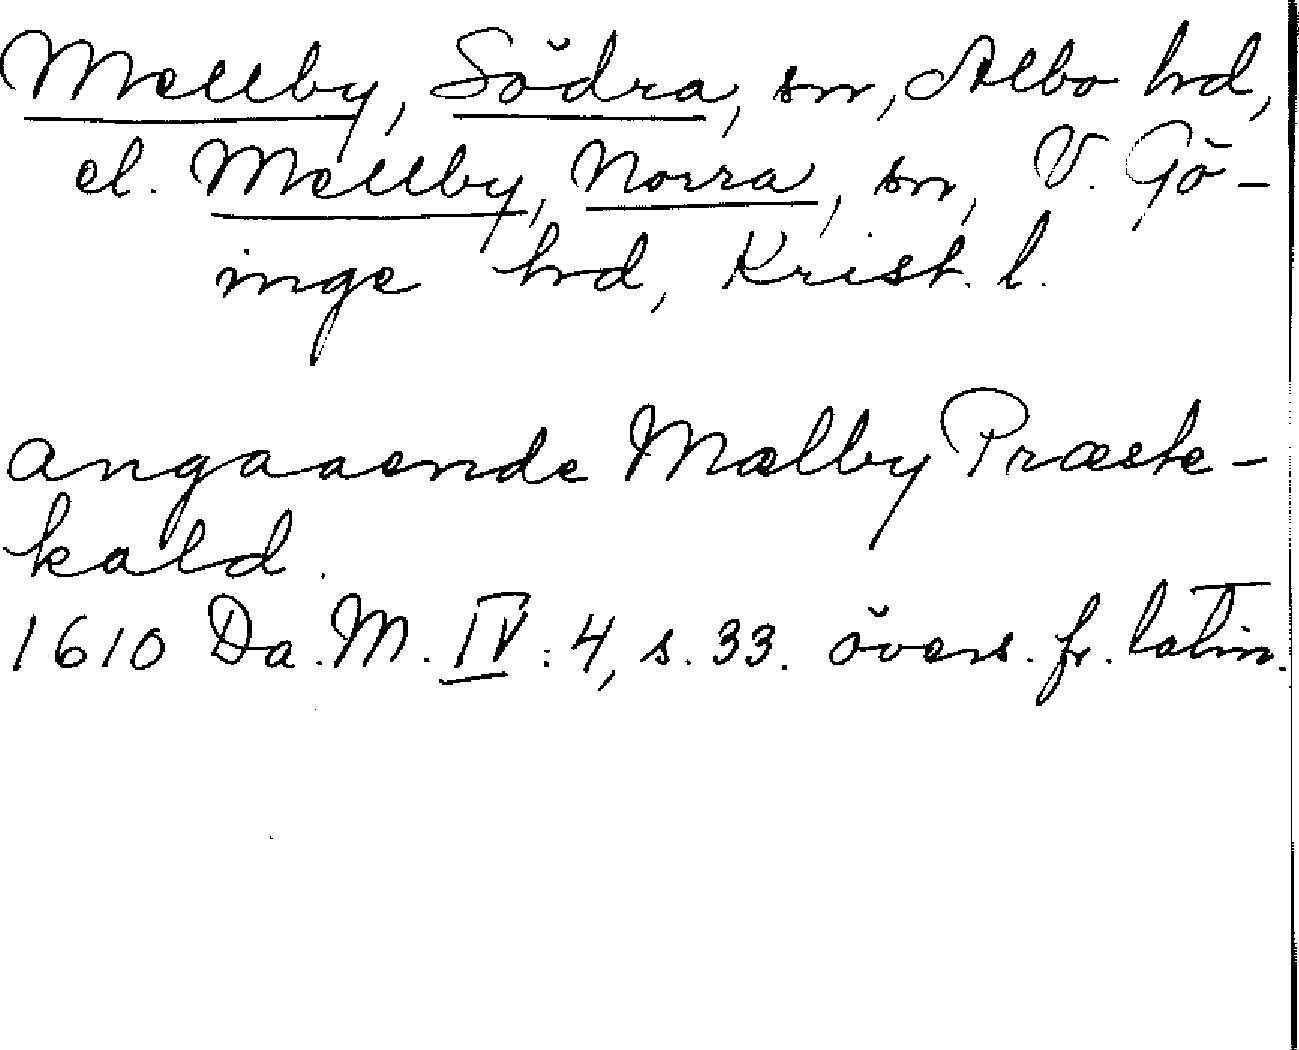 Mellby, Södra, sn, Albo hd,
el. Mellby, Norra, sn, V. Gö-
inge hd, Krist. l.
angaaende Mælby Præste-
kald.
1610 Da. M. IV: 4, s. 33. övers. fr. latin.